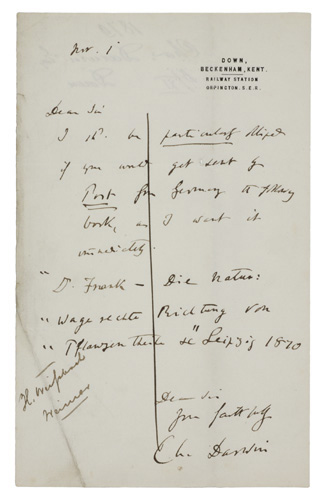 Nov. 1
DOWN,
BECKENHAM, KENT.
RAILWAY STATION
ORPINGTON. S.E.R.
Dear Sir
I shd. be particularly obliged
if you would get sent by
Post from Germany the following
book, as I want it
immediately.
" D. Frank — Die Natur:
" Wagerechte Richtung von
" Pflanzentheile &c" Leipzig 1870
Dear Sir
yours faithfully
Ch. Darwin
H.
Weimar